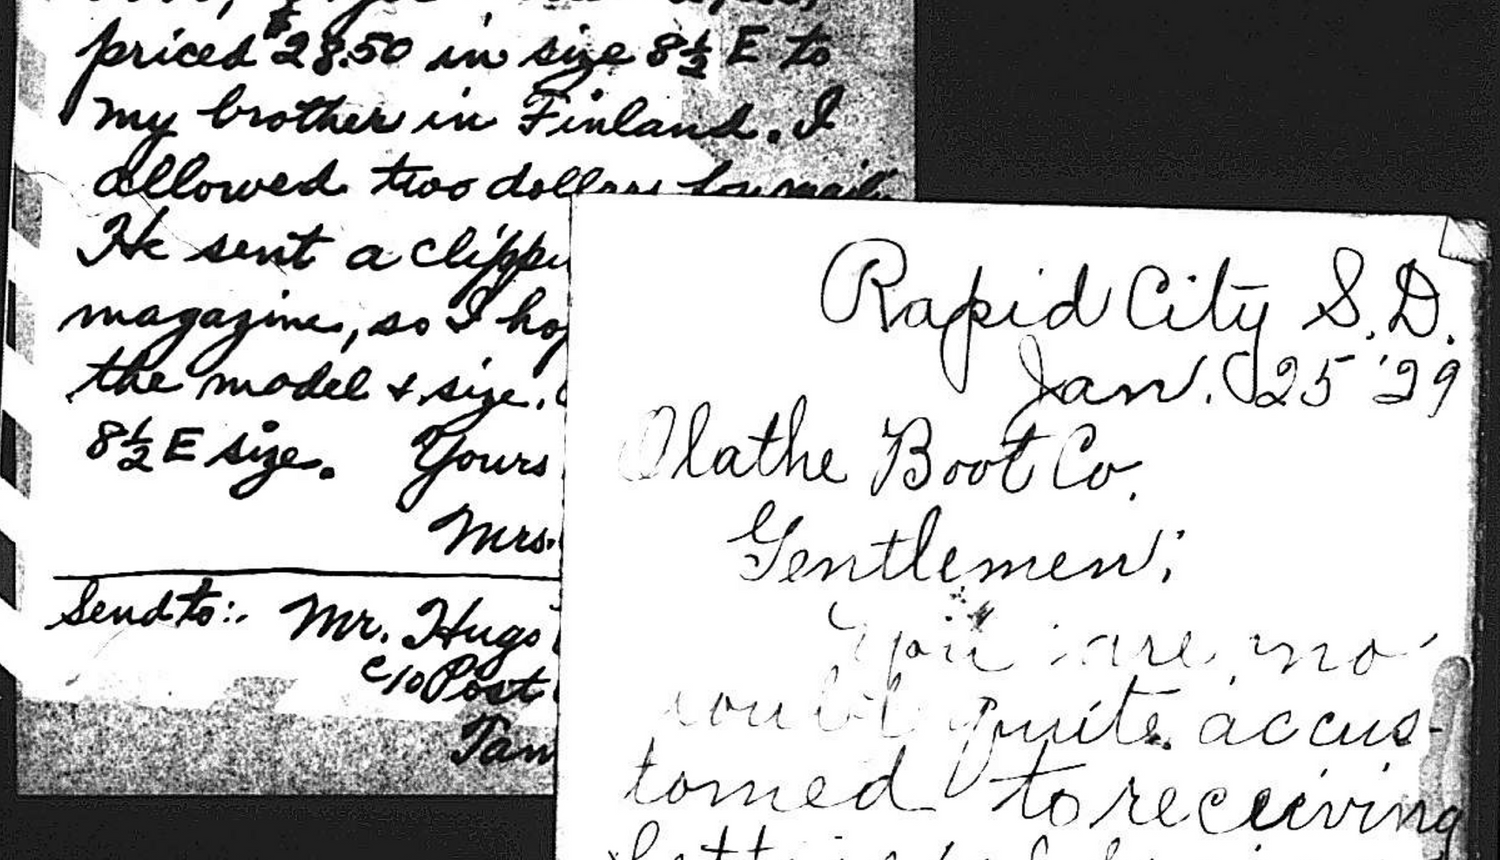 priced $28.50 in size 8½ E to
my brother in Finland. I
allowed two dollars for mail
He sent a clippi
magazine, so I hop
the model & size.
8½ E size. Yours
Mrs.
Send to:. Mr. Hugo
c/o Post
Tam
Rapid City S.D.
Jan. 25 '29
Olathe Boot Co.
Gentlemen;
You are no
doubt quite accus-
tomed to receiving